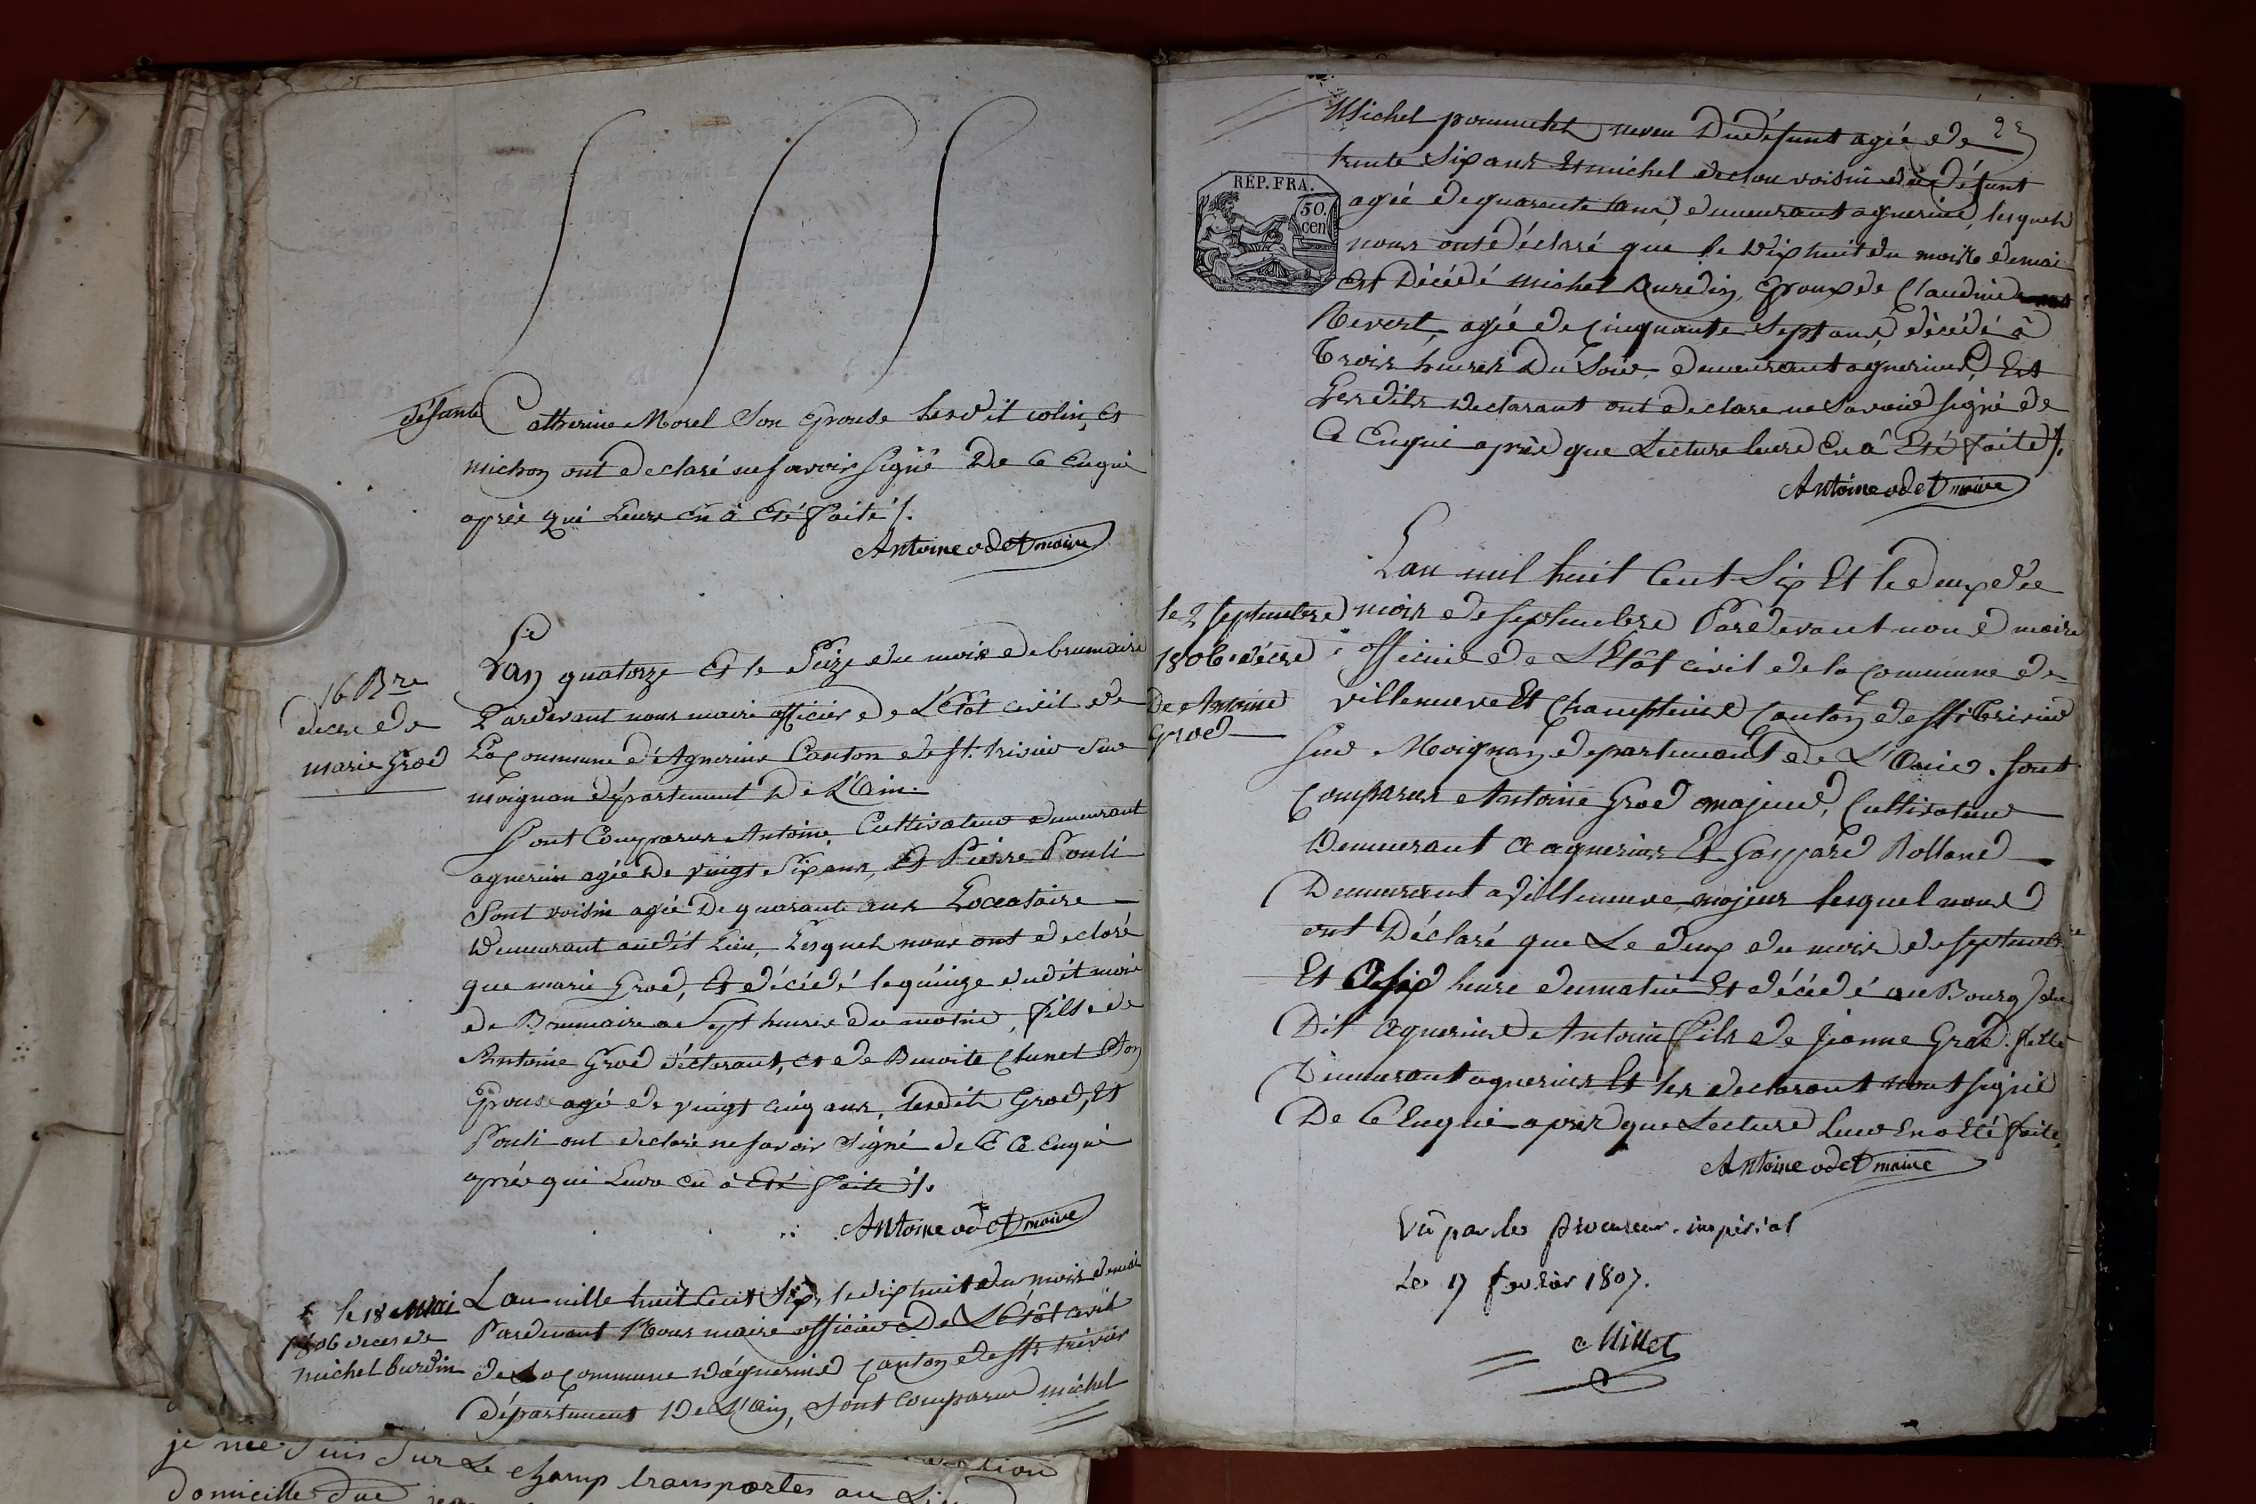 défante Catherine Morel Son Epouse lesdit colin, Et
michon ont declaré ne savoir signé De Ce Enqui
après qui Leure En à Eté faite /.
Antoine odet maire
16 Bre
deces de
marie Groed
L'an quatorze Et le Seize du mois de brumaire
Pardevant nous maire officier de L'Etat civil de
La Commune d'Agnerins Canton de St. trivier Sur
moignan département De L'Ain.
Sont Comparus Antoine Cultivateur demeurant
agnerin agée de vingt Six ans, Et Pierre Pouli
Sont voisin agée De quarante ans Locataire
Demeurant audit Lieu, Lesquels nous ont declaré
que marie Groed, Et décédé le quinze dudit mois
de Brumaire a Sept heures du matin, fils de
Antoine Groed déclarant, et de Benoite Clunet Son
Epouse agé de vingt cinq ans, lesdits Groed, Et
Pouli ont declaré ne savoir Signé de Ce Enqui
après qui Leure En à Eté faite /.
Antoine odet maire
le 18 mai
1806 deces de
michel burdin
L'an mille huit Cent Six, le dix huit du mois de mai
Pardevant Nous maire officier De L'Etat civil
de La Commune d'Agnerins Canton de St. trivier
département De L'Ain, Sont Comparus michel
22
Michel pommelet neveu Du défunt agée de
trente Six ans Et michel declou voisin du défunt
agée de quarante ans, demeurant agnerins, lesquels
RÉP. FRA.
50. cen
nous ont déclaré que le dix huit du mois de mai
Est Décédé michel Burdin, Epoux de Claudine
Revert, agée de Cinquante Sept ans, décédé à
Trois heures Du Soir, demeurant agnerins, Et
Lesdits declarant ont declare ne Savoir signé de
Ce Enqui après que Lecture leure En à Eté faite /.
Antoine odet maire
le 2 septembre
1806. décès
De Antoine
Groed
L'an mil huit Cent Six Et le deux du
mois de septembre Pardevant nous maire
officier de L'Etat civil de la Commune de
villeneuve Et Champteins Canton de St. Trivier
sur Moignan département de L'Ain. Sont
Comparus Antoine Groed majeur, Cultivateur
Demeurant a agnerins Et Gaspard Rolland
Demeurant a villeneuve, majeur lesquel nous
ont Déclaré que Le deux du mois de septembre
Et A six heure du matin Et décédé au Bourg du
Dit Agnerins Antoine fils de jeanne Groed. fille
Demeurant agnerins Et les declarant nont signé
De Ce Enqui après que Lecture Leur En a Eté faite,
Antoine odet maire
Vû par le procureur impérial
Le 17 fevrier 1807.
Millet
je me Suis Sur Le champ transportés au
Domicille du